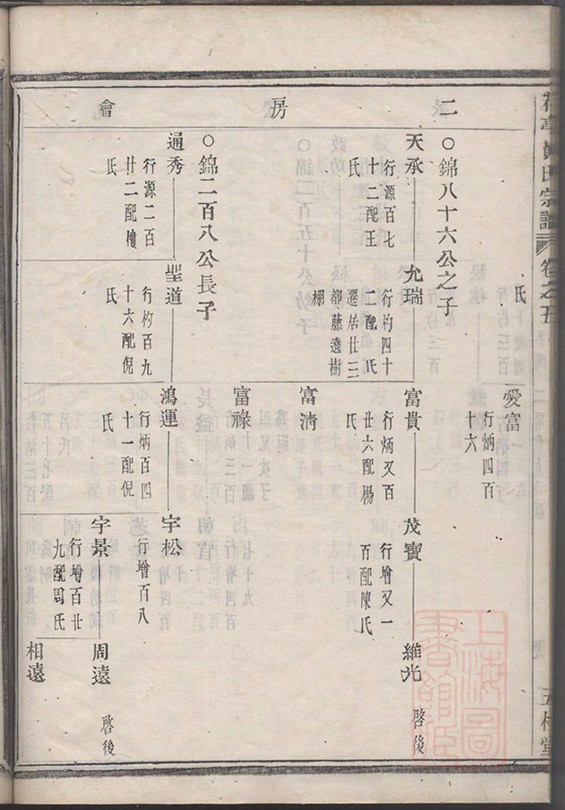 宗譜
卷之五
五桂堂
二房會
氏
愛富
行炳四百
十六
○錦八十六公之子
天承
行源百七
十二配王
氏
允瑞
行杓四十
二配氏
遷居廿三
都藤邉樹
棚
富貴
行炳又百
廿六配楊
氏
茂寶
行增又一
百配陳氏
維光
啓後
富清
富祿
○錦二百八公長子
通秀
行源二百
廿二配樓
氏
聖道
行杓百九
十六配倪
氏
鴻運
行炳百四
十一配倪
氏
宇松
行增百八
宇景
行增百廿
九配周氏
周遠
啓後
相遠
上海圖書館藏